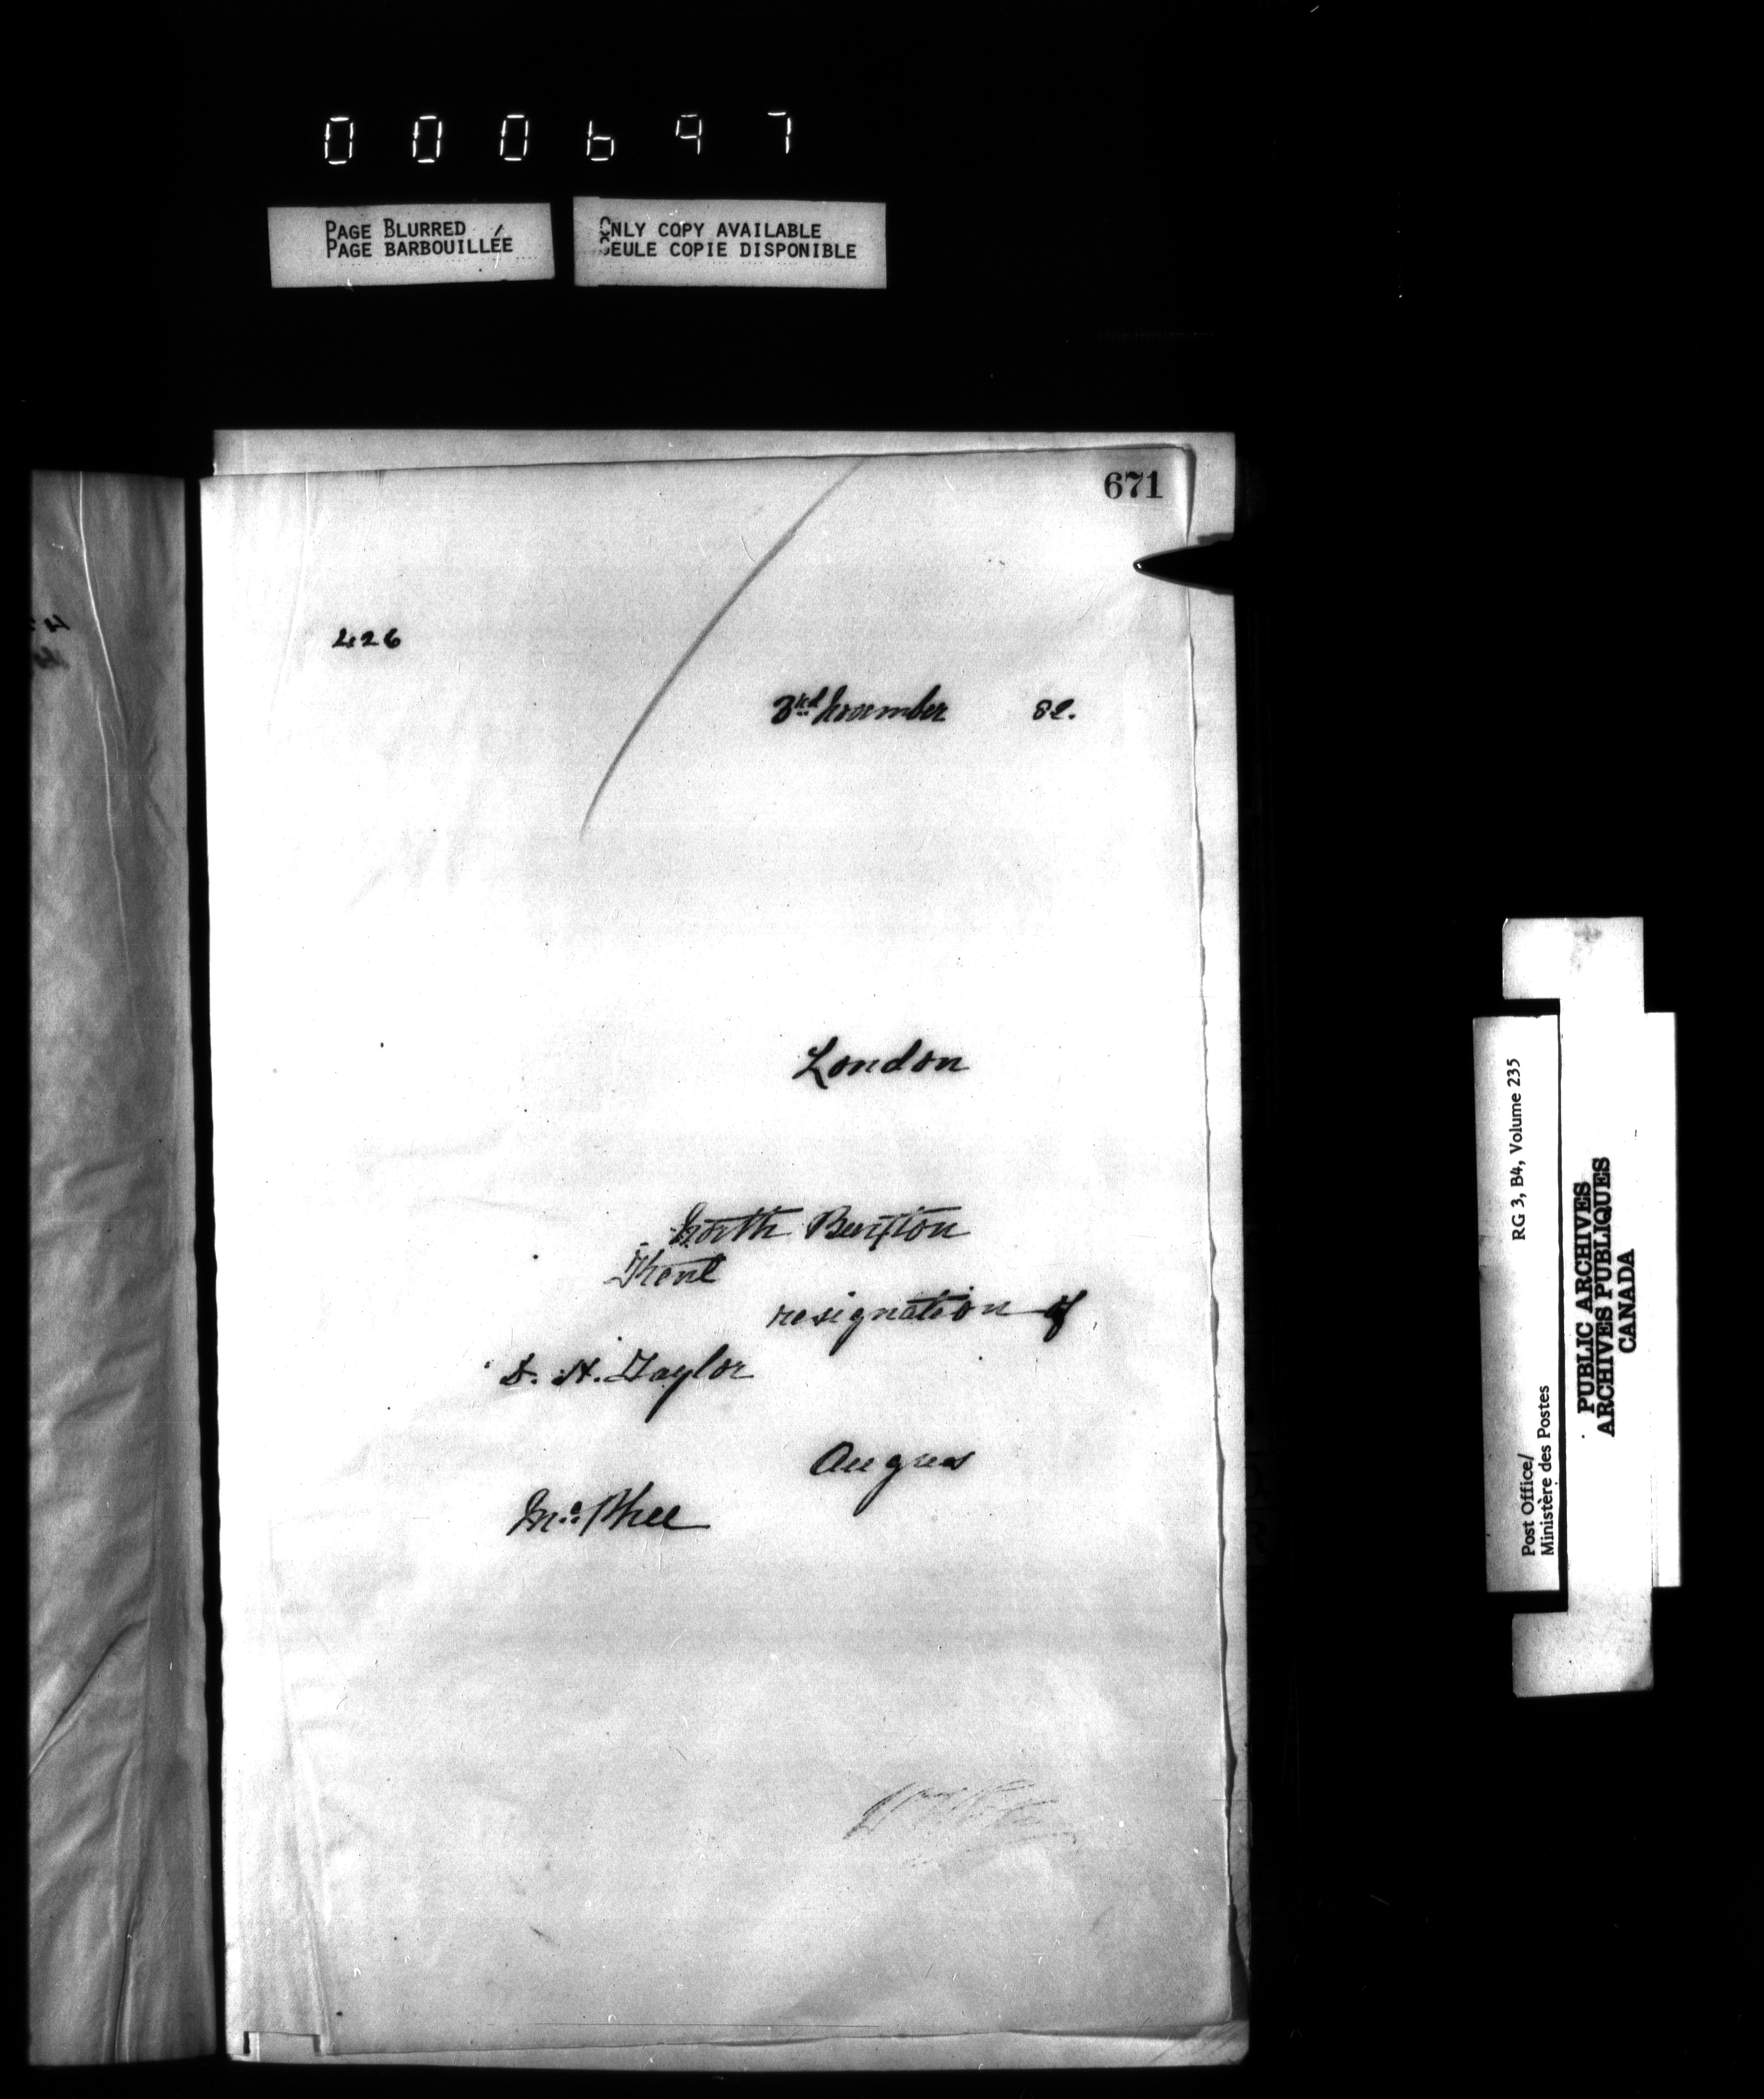 000697
PAGE BLURRED
PAGE BARBOUILLÉE
ONLY COPY AVAILABLE
SEULE COPIE DISPONIBLE
671
426
3rd November 82.
London
North Buxton
Kent
resignation of
A. Taylor
Angus
Mc Phee
RG 3, B4, Volume 235
Post Office/
Ministère des Postes
PUBLIC ARCHIVES
ARCHIVES PUBLIQUES
CANADA